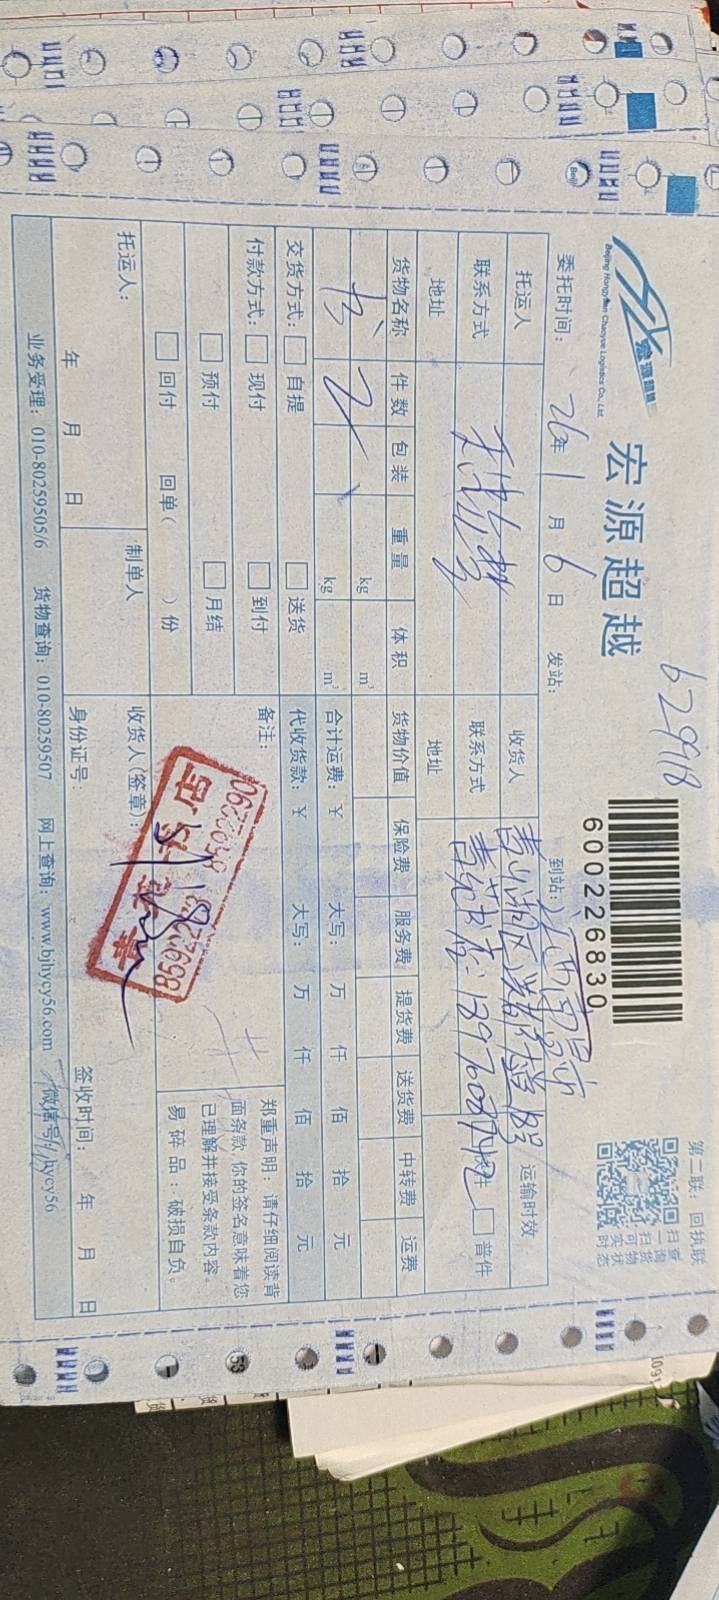 宏源超越
Beijing Hongyuan Chaoyue Logistics Co., Ltd.
宏源超越
629918
600226830
第二联：回执联
扫一扫可实时
查询货物状态
委托时间： 26年 1月 6日 发站： 到站： 江西南昌市
托运人 收货人 运输时效
联系方式 联系方式 普件
地址 地址
货物名称 件数 包装 重量 体积 货物价值 保险费 服务费 提货费 送货费 中转费 运费
书 2 kg m³
kg m³ 合计运费：￥ 大写： 万 仟 佰 拾 元
交货方式： 自提 送货 代收货款：￥ 大写： 万 仟 佰 拾 元
付款方式： 现付 到付 备注：
预付 月结
回付 回单( )份
郑重声明：请仔细阅读背
面条款，你的签名意味着您
已理解并接受条款内容。
易碎品：破损自负。
托运人： 制单人 收货人(签章)：
年 月 日 身份证号： 签收时间： 年 月 日
业务受理：010-80259505/6 货物查询：010-80259507 网上查询：www.bjhycy56.com 微信号：hycy56